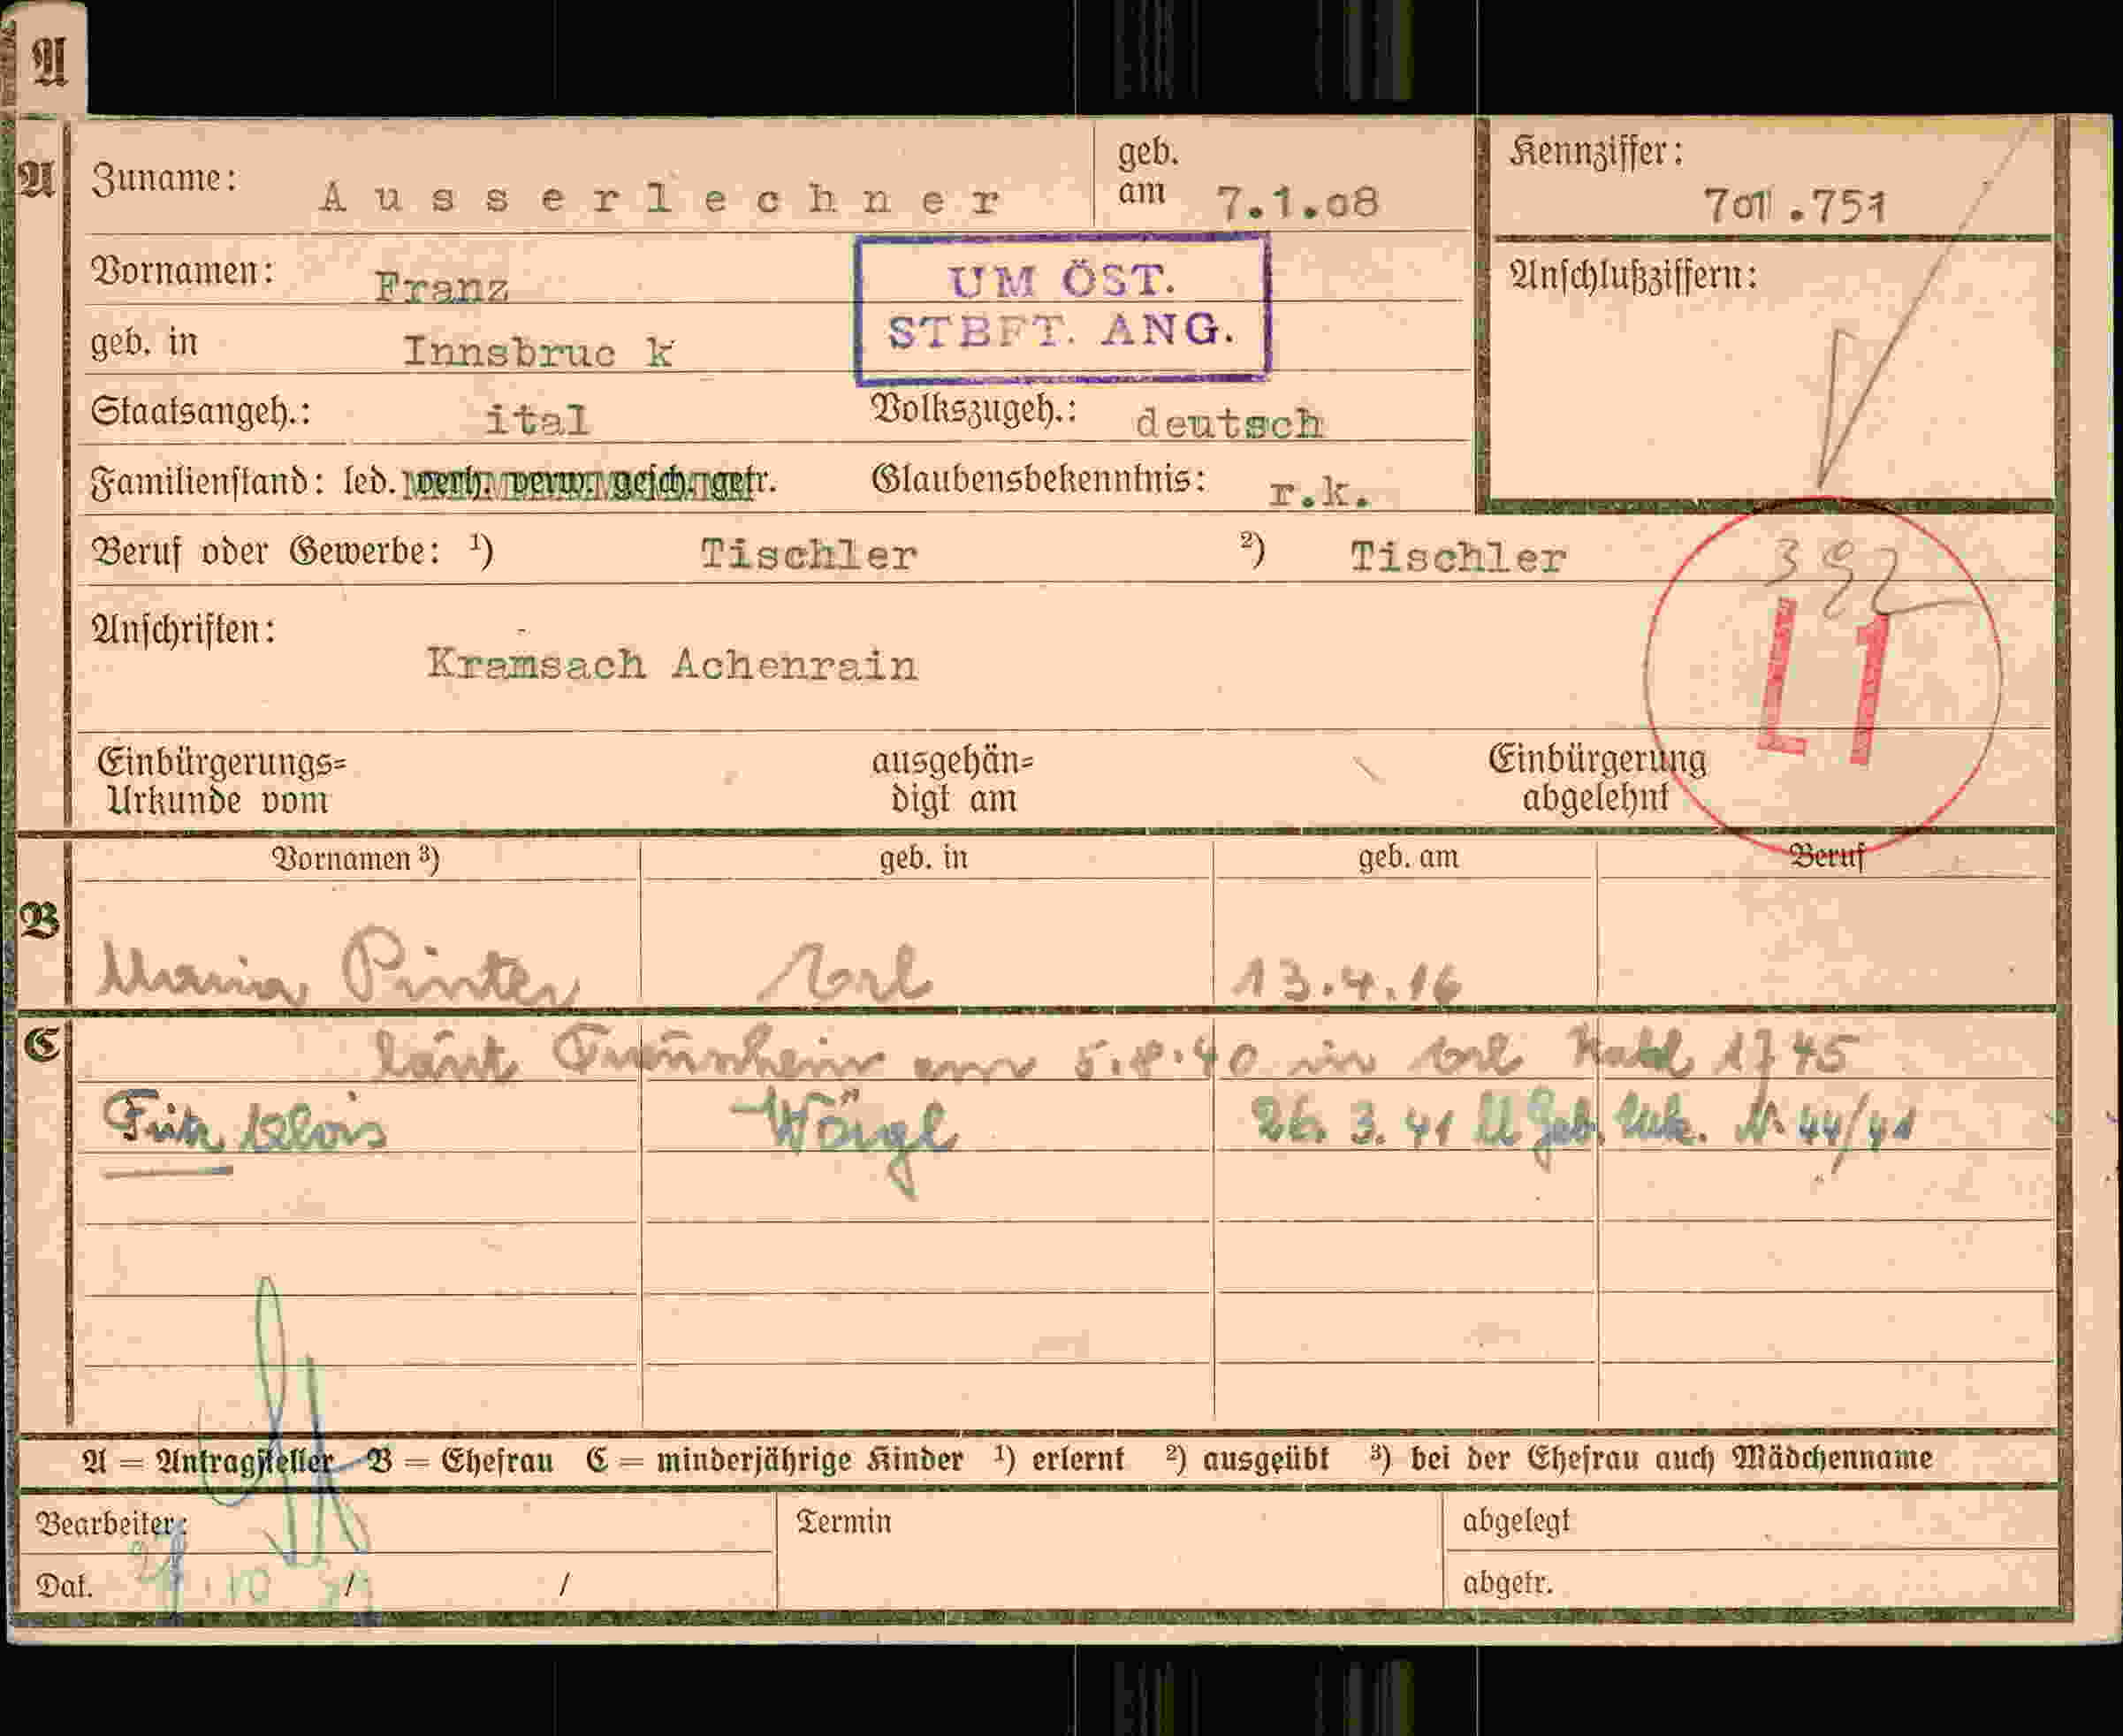 A
A Zuname: Ausserlechner geb. am 7.1.08 Kennziffer: 701.751
Vornamen: Franz UM ÖST. STBFT. ANG. Anschlußziffern:
geb. in Innsbruc k
Staatsangeh.: ital Volkszugeh.: deutsch
Familienstand: led. verh. verw. gesch. getr. Glaubensbekenntnis: r.k.
Beruf oder Gewerbe: 1) Tischler 2) Tischler 392
Anschriften: Kramsach Achenrain L1
Einbürgerungs= Urkunde vom ausgehän= digt am Einbürgerung abgelehnt
Vornamen 3) geb. in geb. am Beruf
B Maria Pinter 13.4.16
C laut Trauschein am 5.8.40 in 1745
Fritz Alois Wörgl 26. 3. 41 Geb. Urk. Nr. 44/41
A = Antragsteller B = Ehefrau C = minderjährige Kinder 1) erlernt 2) ausgeübt 3) bei der Ehefrau auch Mädchenname
Bearbeiter: Termin abgelegt
Dat. / / abgetr.